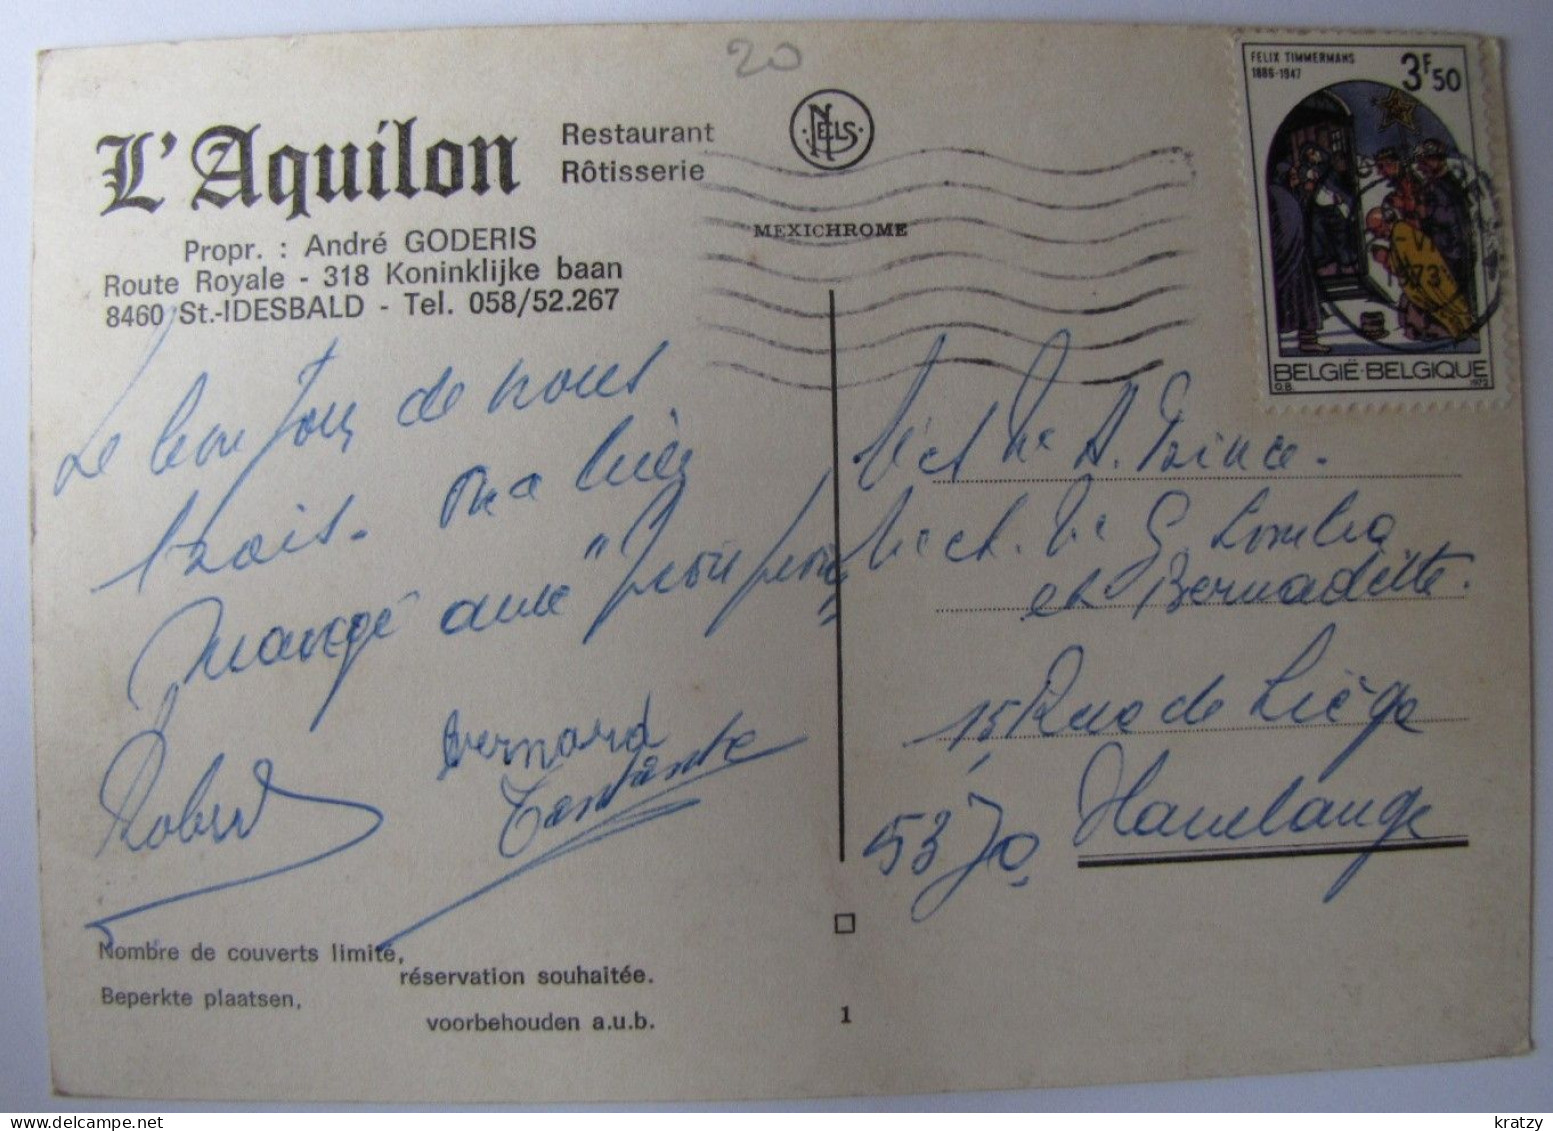 20
L'Aquilon
Restaurant
Rôtisserie
Propr. : André GODERIS
Route Royale - 318 Koninklijke baan
8460 St.-IDESBALD - Tel. 058/52.267
NELS
MEXICHROME
FELIX TIMMERMANS
1886-1947
3F50
1973
BELGIË-BELGIQUE
O.B. 1972
Le bonjour de nous
trois. On a bien
mangé avec "
Robert
Bernard
et Me A. Prince.
et Me G.
et Bernadette.
15, Rue de Liège
5370 Havelange
Nombre de couverts limité,
réservation souhaitée.
Beperkte plaatsen,
voorbehouden a.u.b.
1
kratzy
delcampe.net